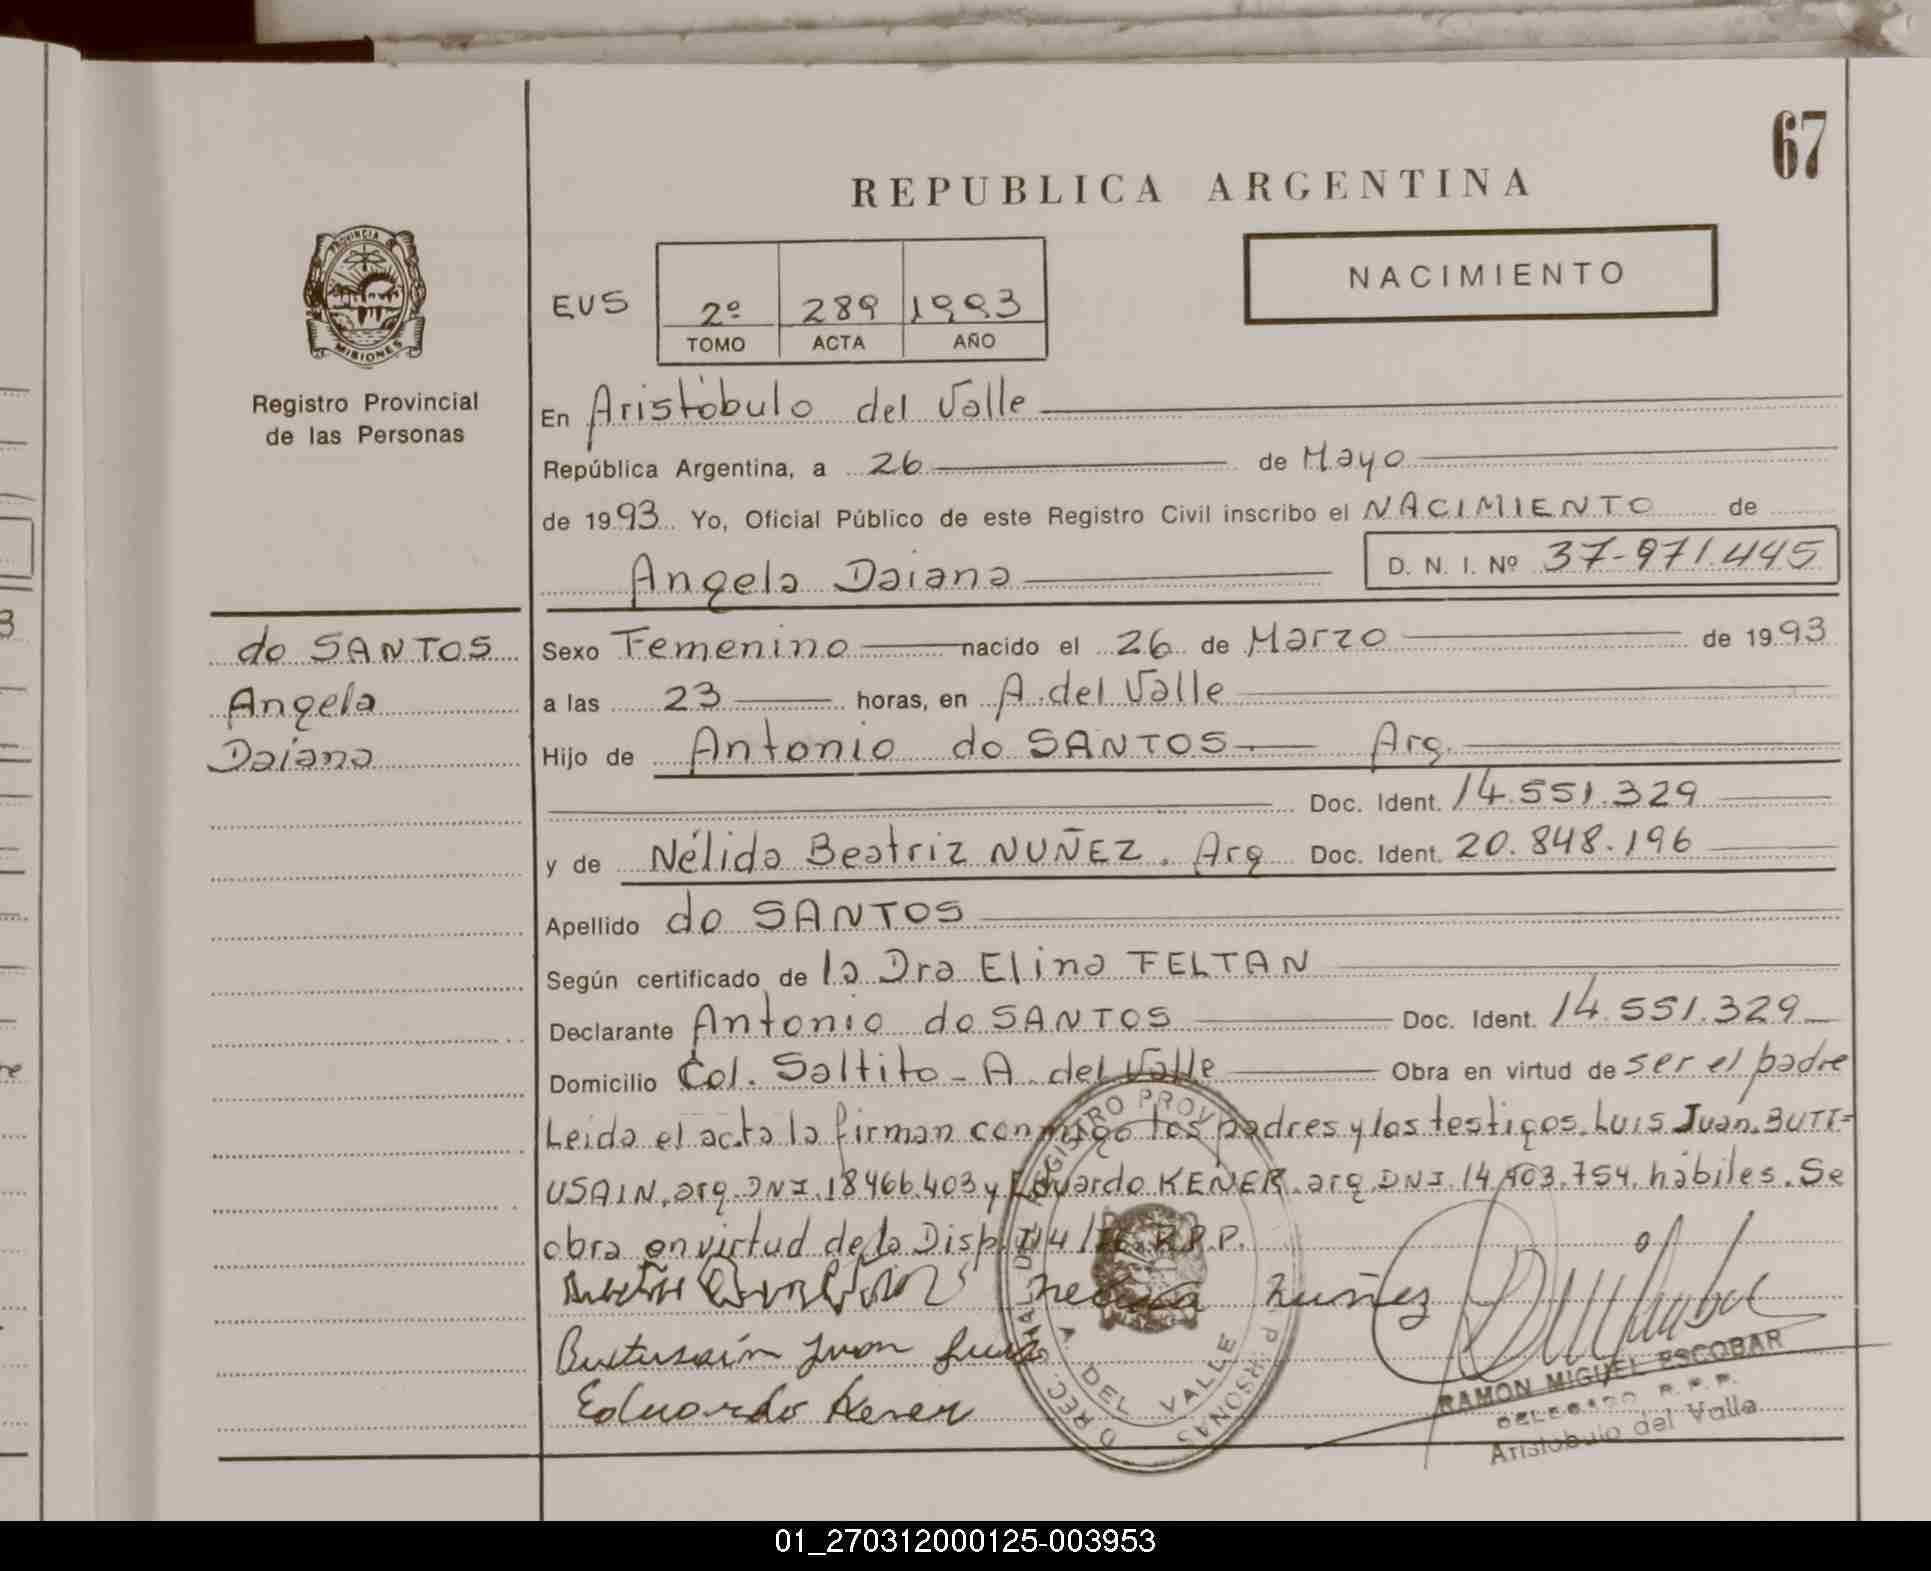 67
REPUBLICA ARGENTINA
NACIMIENTO
PROVINCIA
MISIONES
EVS 2º 289 1993
TOMO ACTA AÑO
Registro Provincial
de las Personas
En Aristóbulo del Valle
República Argentina, a 26 de Mayo
de 1993 Yo, Oficial Público de este Registro Civil inscribo el NACIMIENTO de
Angela Daiana D. N. I. Nº 37-971.445
do SANTOS
Angela
Daiana
Sexo Femenino nacido el 26 de Marzo de 1993
a las 23 horas, en A. del Valle
Hijo de Antonio do SANTOS Arg.
Doc. Ident. 14.551.329
y de Nélida Beatriz NUÑEZ. Arg Doc. Ident. 20.848.196
Apellido do SANTOS
Según certificado de la Dra Elina FELTAN
Declarante Antonio do SANTOS Doc. Ident. 14.551.329
Domicilio Col. Saltito - A. del Valle Obra en virtud de ser el padre
Leida el acta la firman conmigo los padres y los testigos. Luis Juan BUTT=
USAIN, arg. DNI. 18466.403 y Eduardo KENER. arg. DNI. 14.903.754. hábiles. Se
obra en virtud de la Disp. R.P.P.
Nelida Nuñez
Buttusain Juan Luis
Eduardo Kener
DEL REGISTRO PROV
A DEL VALLE
RAMON MIGUEL ESCOBAR
DELEGADO R.P.P.
Aristobulo del Valle
01_270312000125-003953